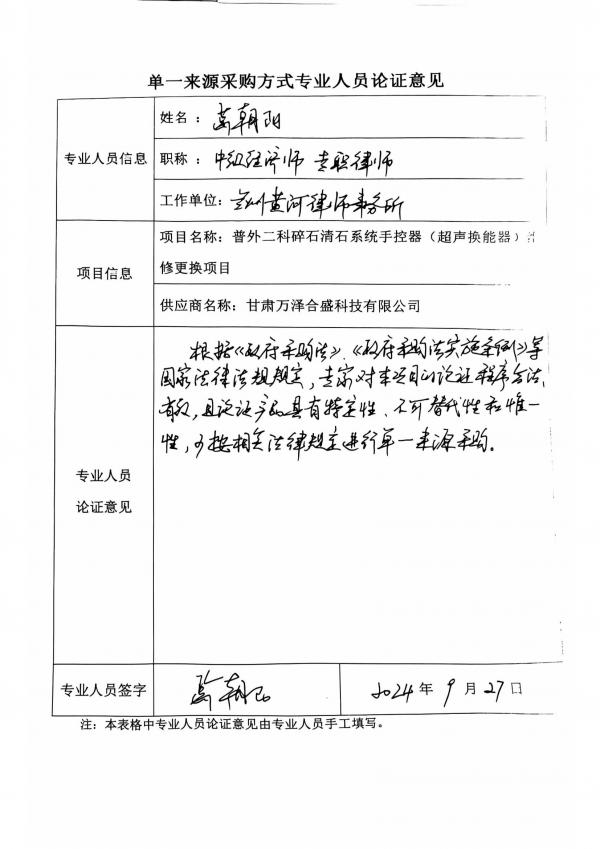 单一来源采购方式专业人员论证意见
专业人员信息
姓名：朝阳
职称：中级经济师 专职律师
工作单位：兰州黄河律师事务所
项目信息
项目名称：普外二科碎石清石系统手控器（超声换能器）
修更换项目
供应商名称：甘肃万泽合盛科技有限公司
专业人员
论证意见
根据《政府采购法》、《政府采购法实施条例》等
国家法律法规规定，专家对本项目的论证程序合法、
有效，且论证产品具有特定性、不可替代性和唯一
性，可按相关法律规定进行单一来源采购。
专业人员签字
朝阳
2024年9月27日
注：本表格中专业人员论证意见由专业人员手工填写。